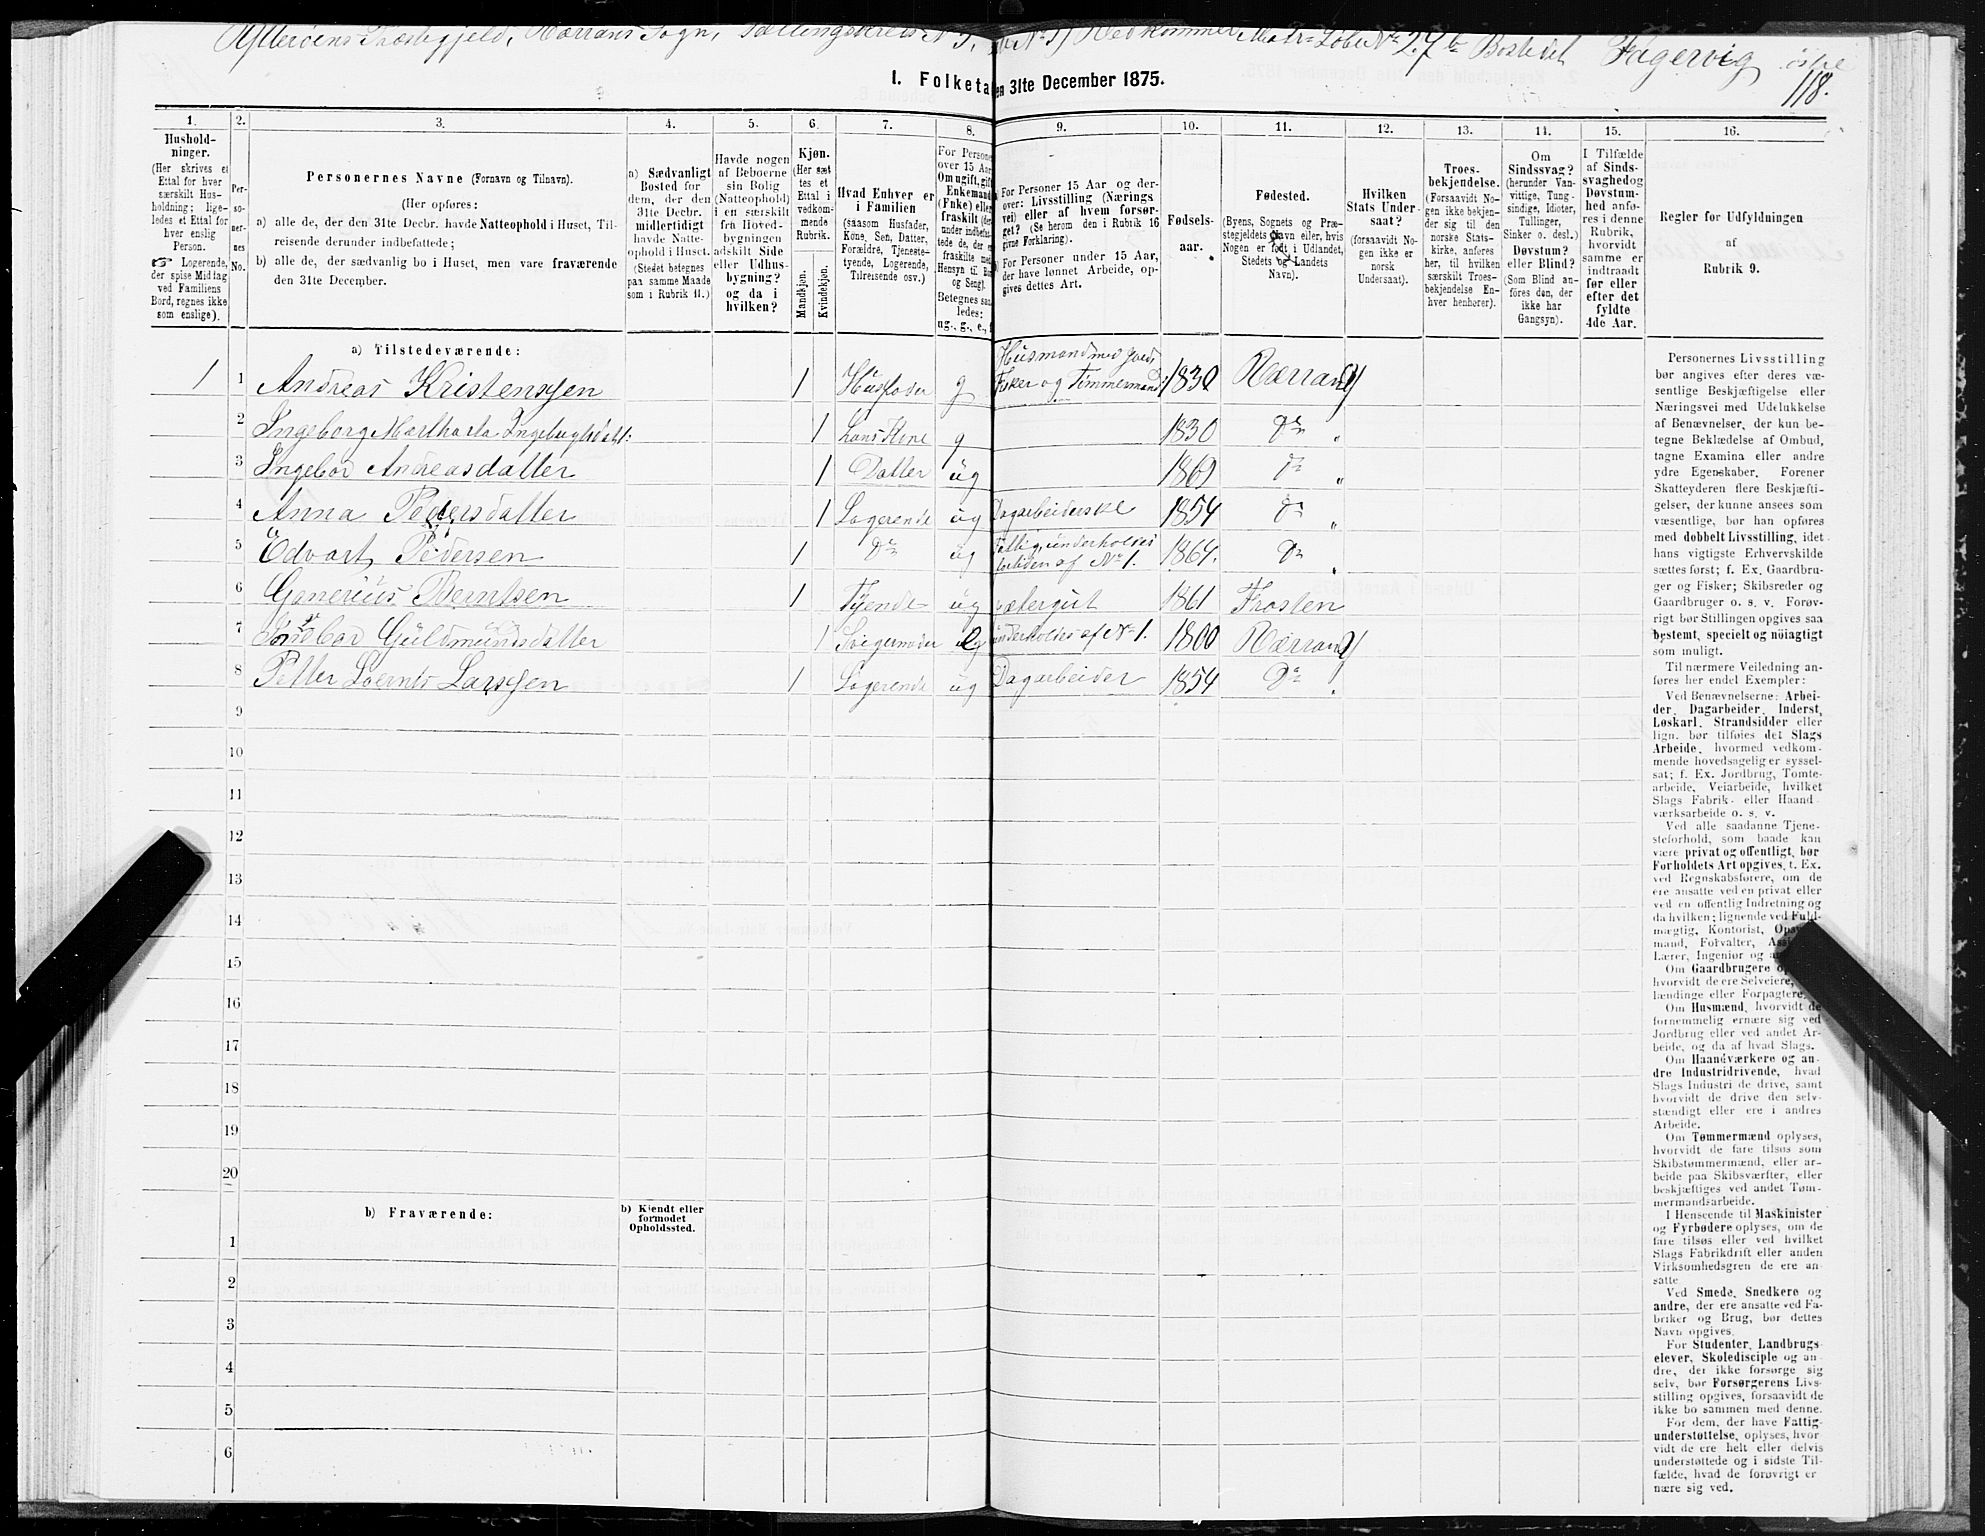 Ytterøens Præstegjeld, Rørrans Sogn, Tællingskreds No 3, No 5, Vedkommer Matr-Løbe No 27b Bostedet Fagervig østre
118.
I. Folketal den 31te December 1875.
1. 2. 3. 4. 5. 6. 7. 8. 9. 10. 11. 12. 13. 14. 15. 16.
Hushold-
ninger.
(Her skrives et
Ettal for hver
særskilt Hus-
holdning; lige-
ledes et Ettal for
hver enslig
Person.
☞ Logerende,
der spise Middag
ved Familiens
Bord, regnes ikke
som enslige).
Per-
so-
ner-
nes
No.
Personernes Navne (Fornavn og Tilnavn).
(Her opføres:
a) alle de, der den 31te Decbr. havde Natteophold i Huset, Til-
reisende derunder indbefattede;
b) alle de, der sædvanlig bo i Huset, men vare fraværende
den 31te December.
a) Sædvanligt
Bosted for
dem, der den
31te Decbr.
midlertidigt
havde Natte-
ophold i Huset.
(Stedet betegnes
paa samme Maade
som i Rubrik 11.)
Havde nogen
af Beboerne
sin Bolig
(Natteophold)
i en særskilt
fra Hoved-
bygningen
adskilt Side
eller Udhus-
bygning?
og da i
hvilken?
Kjøn.
(Her sæt-
tes et
Ettal i
vedkom-
mende
Rubrik.
Mandkjøn.
Kvindekjøn.
Hvad Enhver er
i Familien
(saasom Husfader,
Kone, Søn, Datter,
Forældre, Tjeneste-
tyende, Logerende,
Tilreisende osv.)
For Personer
over 15 Aar
Om ugift, gift,
Enkemand
(Enke) eller
fraskilt (der-
under indbefat-
tede de, der ere
fraskilte med
Hensyn til Bord
og Seng).
Betegnes saa-
ledes:
ug., g., e., f.
For Personer 15 Aar og der-
over: Livsstilling (Nærings-
vei) eller af hvem forsør-
get? (Se herom den i Rubrik 16
givne Forklaring).
For Personer under 15 Aar,
der have lønnet Arbeide, op-
gives dettes Art.
Fødsels-
aar.
Fødested.
(Byens, Sognets og Præ-
stegjeldets Navn eller, hvis
Nogen er født i Udlandet,
Stedets og Landets
Navn).
Hvilken
Stats Under-
saat?
(forsaavidt No-
gen ikke er
norsk
Undersaat).
Troes-
bekjendelse.
(Forsaavidt No-
gen ikke bekjen-
der sig til den
norske Stats-
kirke, anføres
her, til hvilken
særskilt Troes-
bekjendelse En-
hver henhører).
Om
Sindssvag?
(herunder Van-
vittige, Tung-
sindige, Idioter,
Tullinger,
Sinker o. desl.)
Døvstum?
eller Blind?
(Som Blind an-
føres den, der
ikke har
Gangsyn).
I Tilfælde
af Sinds-
svaghed og
Døvstum-
hed anfø-
res i denne
Rubrik,
hvorvidt
samme er
indtraadt
før eller
efter det
fyldte
4de Aar.
Regler for Udfyldningen
af
Rubrik 9.
a) Tilstedeværende:
1 1 Andreas Kristenssen 1 Husfader g Husmand med Jord, Fisker og Timmermand 1830 Rørran
2 Ingeborg Martha Ingebrigtsdatt: 1 hans Kone g 1830 Do
3 Ingebor Andreasdatter 1 Datter ug 1869 Do
4 Anna Pedersdatter 1 Logerende ug Dagarbeiderske 1854 Do
5 Edvart Pedersen 1 Do ug 1864. Do
6 Berntsen 1 Tyende ug 1861 Frosten
7 Ingebor Guldmundsdatter 1 Svigermoder e underholdes af No 1. 1800 Rørran
8 Petter Larssen 1 Logerende ug Dagarbeider 1854 Do
9
10
11
12
13
14
15
16
17
18
19
20
b) Fraværende:
b) Kjendt eller
formodet
Opholdssted.
1
2
3
4
5
6
Personernes Livsstilling
bør angives efter deres væ-
sentlige Beskjæftigelse eller
Næringsvei med Udelukkelse
af Benævnelser, der kun be-
tegne Beklædelse af Ombud,
tagne Examina eller andre
ydre Egenskaber. Forener
Skatteyderen flere Beskjæfti-
gelser, der kunne ansees som
væsentlige, bør han opføres
med dobbelt Livsstilling, idet
hans vigtigste Erhvervskilde
sættes først; f. Ex. Gaardbru-
ger og Fisker; Skibsreder og
Gaardbruger o. s. v. Forøv-
rigt bør Stillingen opgives saa
bestemt, specielt og nøiagtigt
som muligt.
Til nærmere Veiledning an-
føres her endel Exempler:
Ved Benævnelserne: Arbei-
der, Dagarbeider, Inderst,
Løskarl, Strandsidder eller
lign. bør tilføies det Slags
Arbeide, hvormed vedkom-
mende hovedsagelig er syssel-
sat; f. Ex. Jordbrug, Tomte-
arbeide, Veiarbeide, hvilket
Slags Fabrik- eller Haand-
værksarbeide o. s. v.
Ved alle saadanne Tjene-
steforhold, som baade kan
være privat og offentligt, bør
Forholdets Art opgives, t. Ex.
ved Regnskabsførere, om de
ere ansatte ved en privat eller
ved en offentlig Indretning og
da hvilken; lignende ved Fuld-
mægtig, Kontorist, Opsyns-
mand, Forvalter,
Lærer, Ingeniør og
Om Gaardbrugere
hvorvidt de ere Selveiere,
lændinge eller Forpagtere.
Om Husmænd, hvorvidt de
fornemmelig ernære sig ved
Jordbrug eller ved andet Ar-
beide, og da af hvad Slags.
Om Haandværkere og an-
dre Industridrivende, hvad
Slags Industri de drive, samt
hvorvidt de drive den selv-
stændigt eller ere i andres
Arbeide.
Om Tømmermænd oplyses,
hvorvidt de fare tilsøs som
Skibstømmermænd, eller ar-
beide paa Skibsværfter, eller
beskjæftiges ved andet Tøm-
mermandsarbeide.
I Henseende til Maskinister
og Fyrbødere oplyses, om de
fare tilsøs eller ved hvilket
Slags Fabrikdrift eller anden
Virksomhedsgren de ere an-
satte.
Ved Smede, Snedkere og
andre, der ere ansatte ved Fa-
briker og Brug, bør dettes
Navn opgives.
For Studenter, Landbrugs-
elever, Skoledisciple og an-
dre, der ikke forsørge sig
selv, bør Forsørgerens Livs-
stilling opgives, forsaavidt de
ikke bo sammen med denne.
For dem, der have Fattig-
understøttelse, oplyses, hvor-
vidt de ere helt eller delvis
understøttede og i sidste Til-
fælde, hvad de forøvrigt er-
nære sig ved.